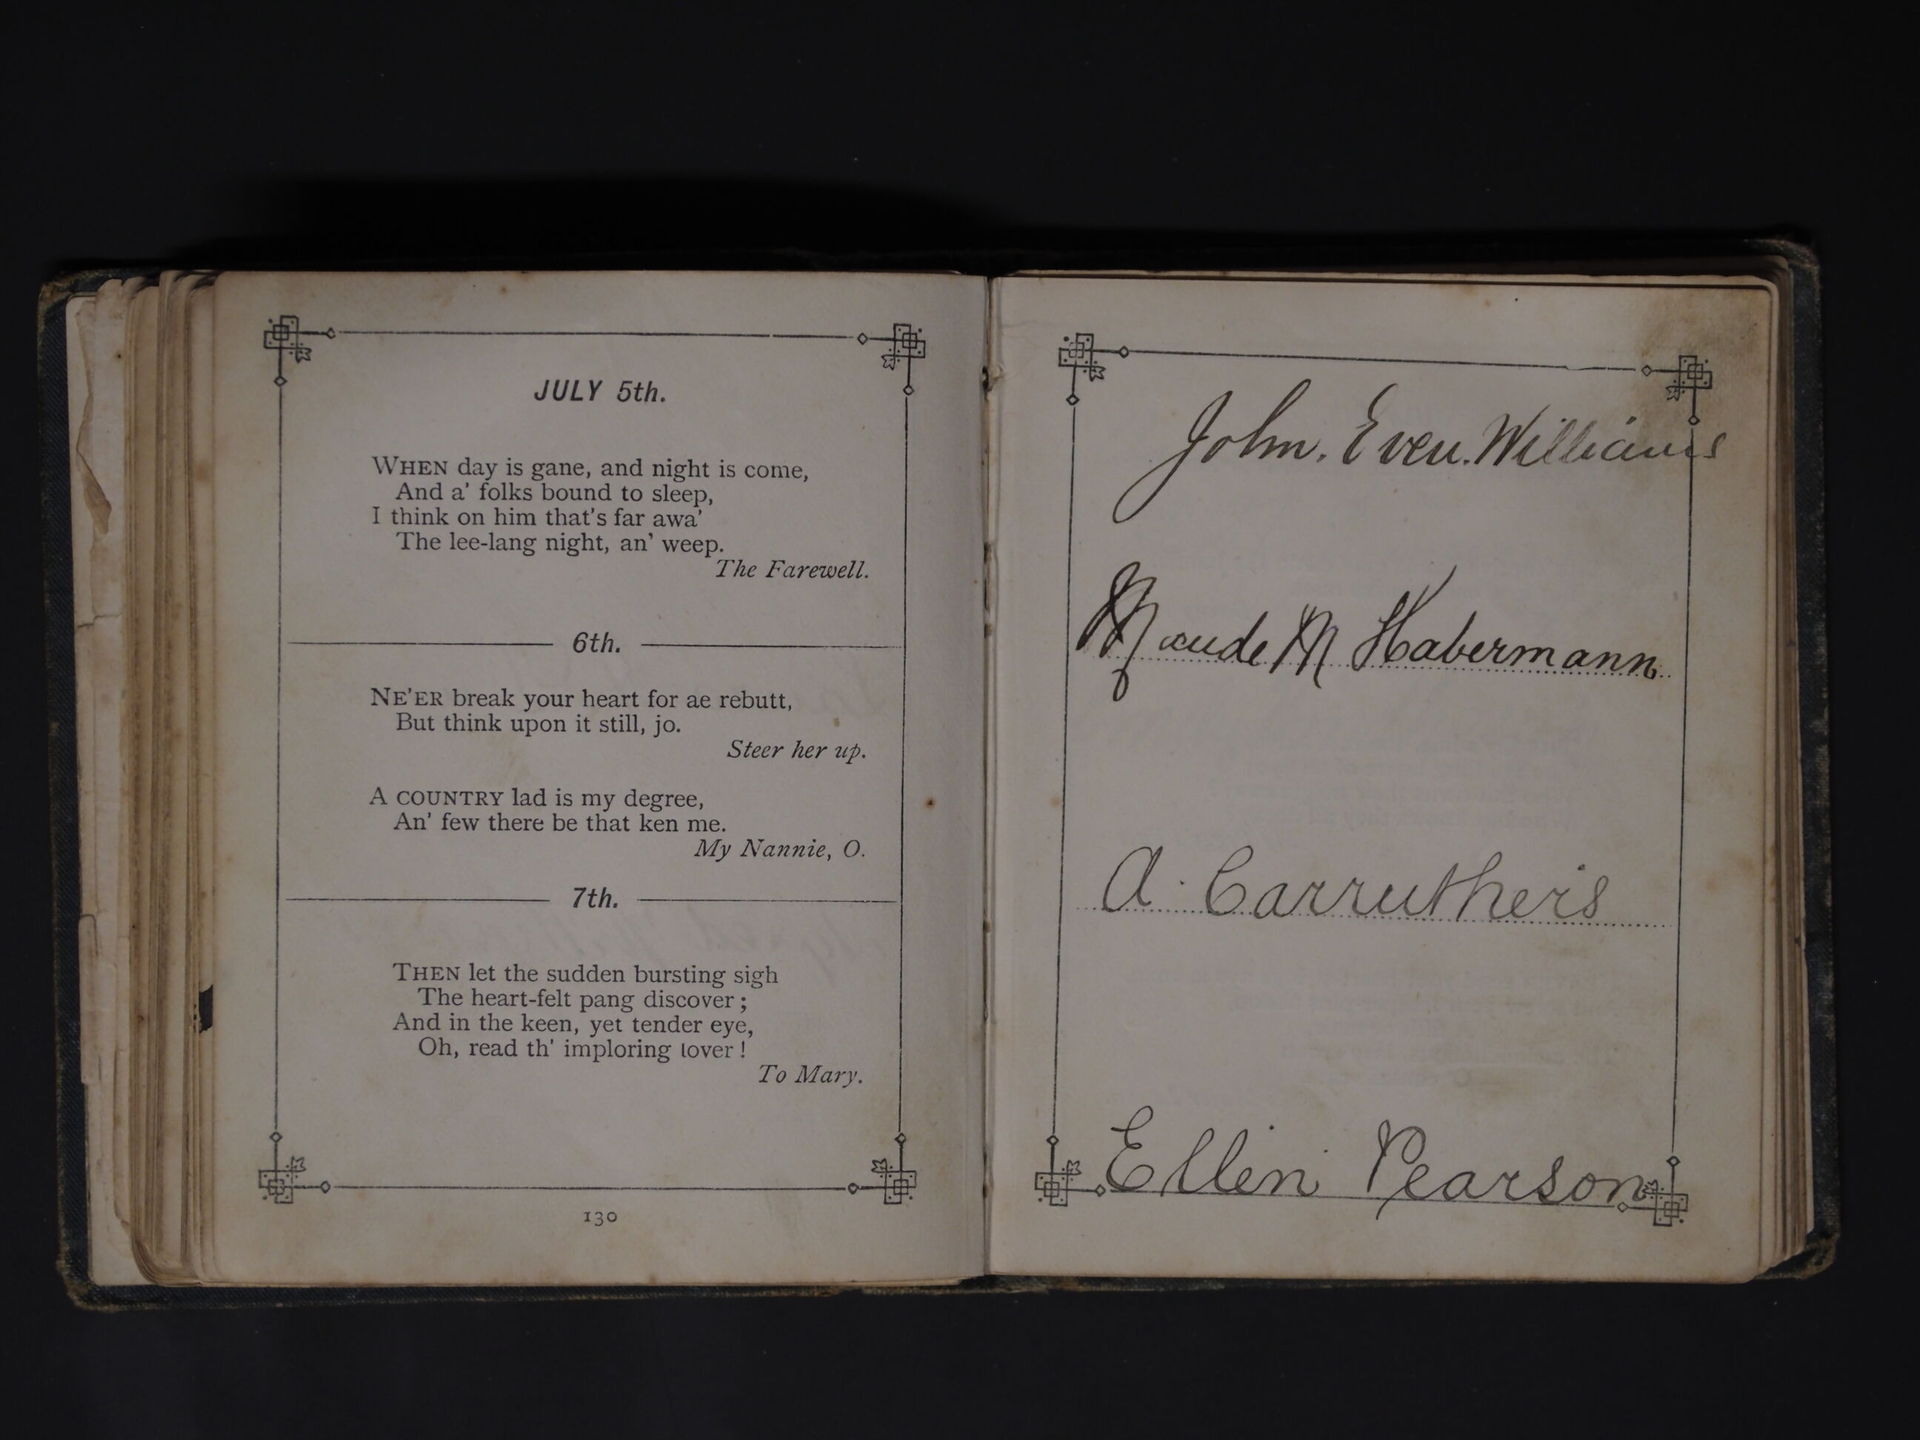 JULY 5th.
WHEN day is gane, and night is come,
And a' folks bound to sleep,
I think on him that's far awa'
The lee-lang night, an' weep.
The Farewell.
6th.
NE'ER break your heart for ae rebutt,
But think upon it still, jo.
Steer her up.
A COUNTRY lad is my degree,
An' few there be that ken me.
My Nannie, O.
7th.
THEN let the sudden bursting sigh
The heart-felt pang discover;
And in the keen, yet tender eye,
Oh, read th' imploring lover!
To Mary.
130
John. Even. Williams
Maude M Habermann
A. Carruthers
Ellen Pearson